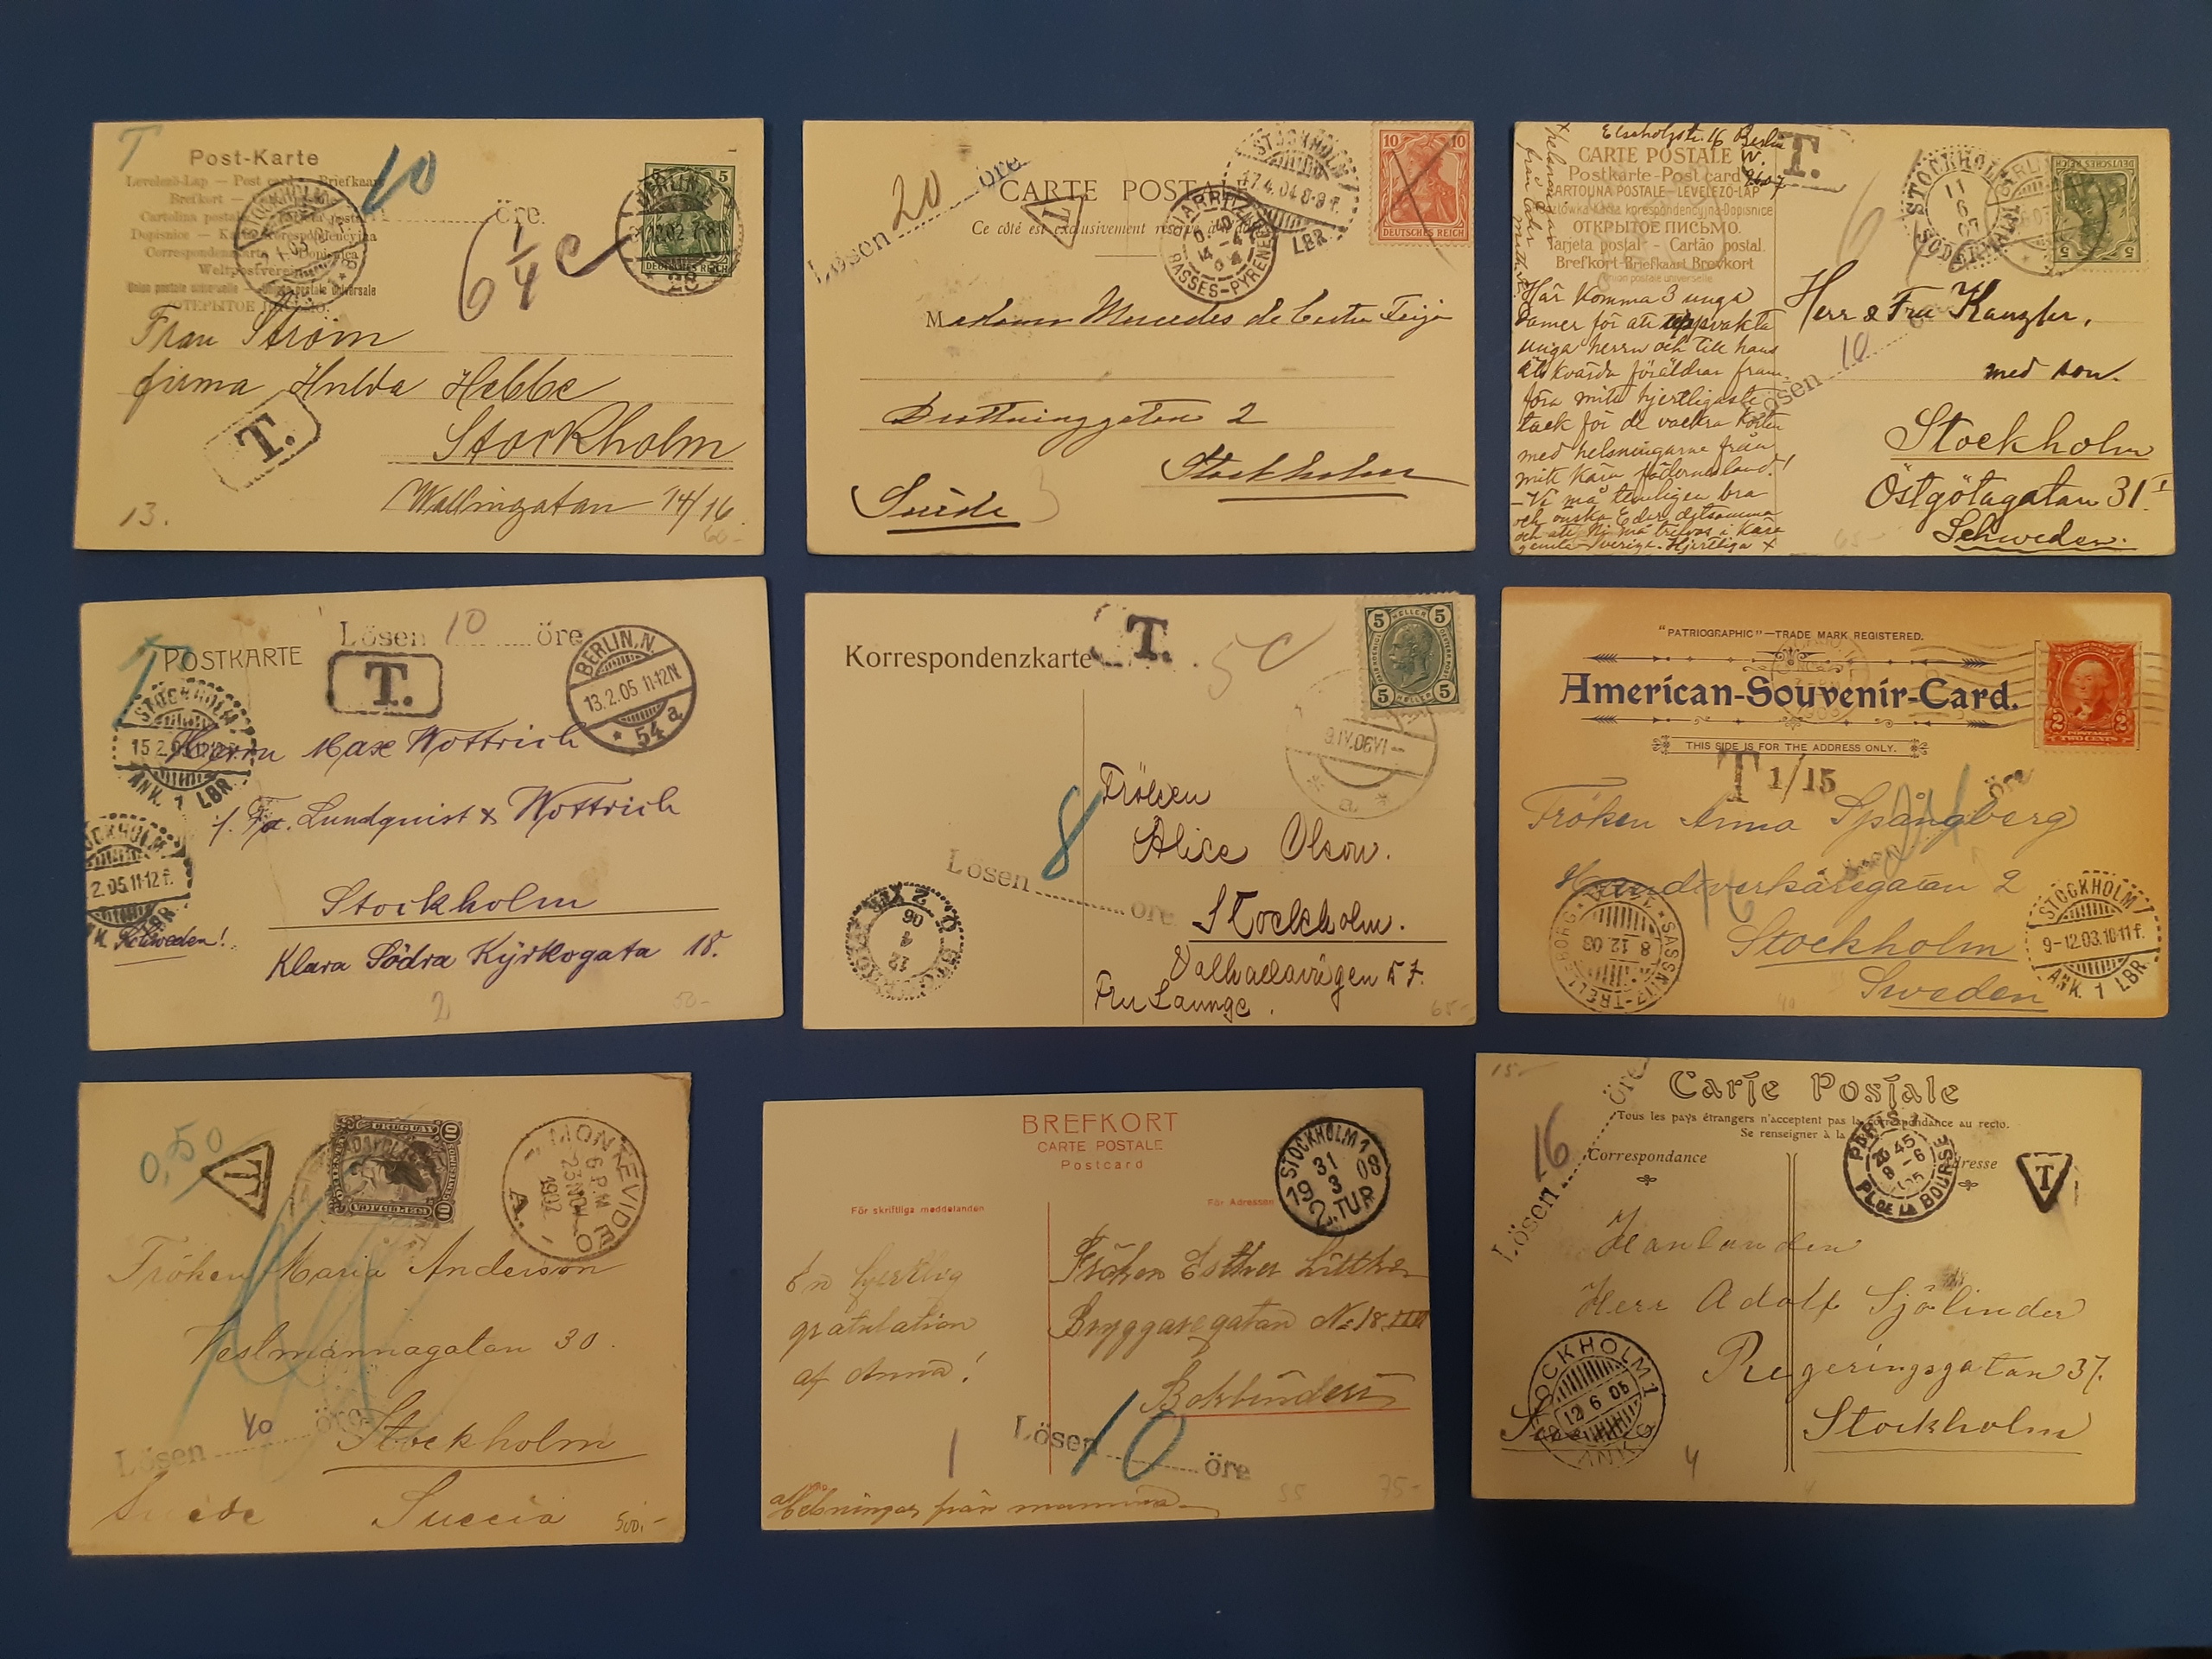 T
Post-Karte
10
Levelező-Lap — Post card — Briefkaart
Weltpostverein
öre.
6 1/4 c
5
DEUTSCHES REICH
28
Frau Ström
firma Hulda Hebbe
Stockholm
Wallingatan 14/16
T.
13.
60-
Lösen 20 öre
CARTE POSTALE
Ce côté est exclusivement réservé
T
STOCKHOLM
17.4.04 8-9 F.
LBR
BIARRITZ
BASSES-PYRENEES
10 10
DEUTSCHES REICH
Madame Mercedes de
Drottninggatan 2
Stockholm
Suède
3
Berlin
W.
9/6 07
T.
CARTE POSTALE
Postkarte-Post card
CARTOLINA POSTALE-LEVELEZÖ-LAP
korespondencyjna-Dopisnice
ОТКРЫТОЕ ПИСЬМО.
Tarjeta postal - Cartão postal.
Brefkort-Briefkaart Brevkort
Union postale universelle
STOCKHOLM
11
6
07
SÖDERMALM
BERLIN
DEUTSCHES REICH
5 5
Här komma 3 unga
damer för att uppvakta
unga herrn och till hans
föräldrar fram-
föra mitt hjertligaste
tack för de vackra korten
med helsningarne från
mitt kära fädernesland!
- Vi må temligen bra
Herr & Fru Kanzler,
med son.
Lösen 10
Stockholm
Östgötagatan 31 I
Schweden.
65-
T
POSTKARTE
Lösen 10 öre
T.
BERLIN, N.
13.2.05 11-12N
* 54 a
STOCKHOLM
15.2.05
ANK. 1 LBR.
STOCKHOLM
2.05 11-12 f.
LBR
Herrn Max Wottrich
f. Fa. Lundquist & Wottrich
Stockholm
Schweden!
Klara Södra Kyrkogata 18.
2
50-
Korrespondenzkarte
T.
5 C
5 HELLER 5
5 HELLER 5
9.IV.06 VI-
* a *
8
Lösen öre
12
4
06
Fröken
Alice Olson.
Stockholm.
Valhallavägen 57.
Fru Launge.
65-
"PATRIOGRAPHIC"—TRADE MARK REGISTERED.
American-Souvenir-Card.
THIS SIDE IS FOR THE ADDRESS ONLY.
2 2
POSTAGE
TWO CENTS
T 1/15
öre
Fröken Anna Spångberg
Lösen
Handtverkaregatan 2
Stockholm
Sweden
SASSNITZ-TRELLEBORG
8 12 03
STOCKHOLM 1
9-12.03.10-11 f.
ANK. 1 LBR.
40
0,50
T
URUGUAY
10 10
CENTESIMOS
MONTEVIDEO
6 P.M
23 NOV
1902
A.
Fröken Maria Anderson
Vestmannagatan 30.
Lösen 40 öre
Stockholm
Suède Suecia
500,-
BREFKORT
CARTE POSTALE
Postcard
STOCKHOLM 1
31
3
19 08
2.TUR
För skriftliga meddelanden
För Adressen
En hjertlig
gratulation
af Anna!
Fröken Esther
Bryggaregatan No 18 III
Bokbinderi
1
Lösen 10 öre
Helsningar från mamma
55
75-
15-
Lösen 16 öre
Carte Postale
Tous les pays étrangers n'acceptent pas la correspondance au recto.
Se renseigner à la
Correspondance
Adresse
PARIS
PL. DE LA BOURSE
T
Herr Adolf Sjölinder
Regeringsgatan 37.
Stockholm
STOCKHOLM 1
12 6 05
4
4